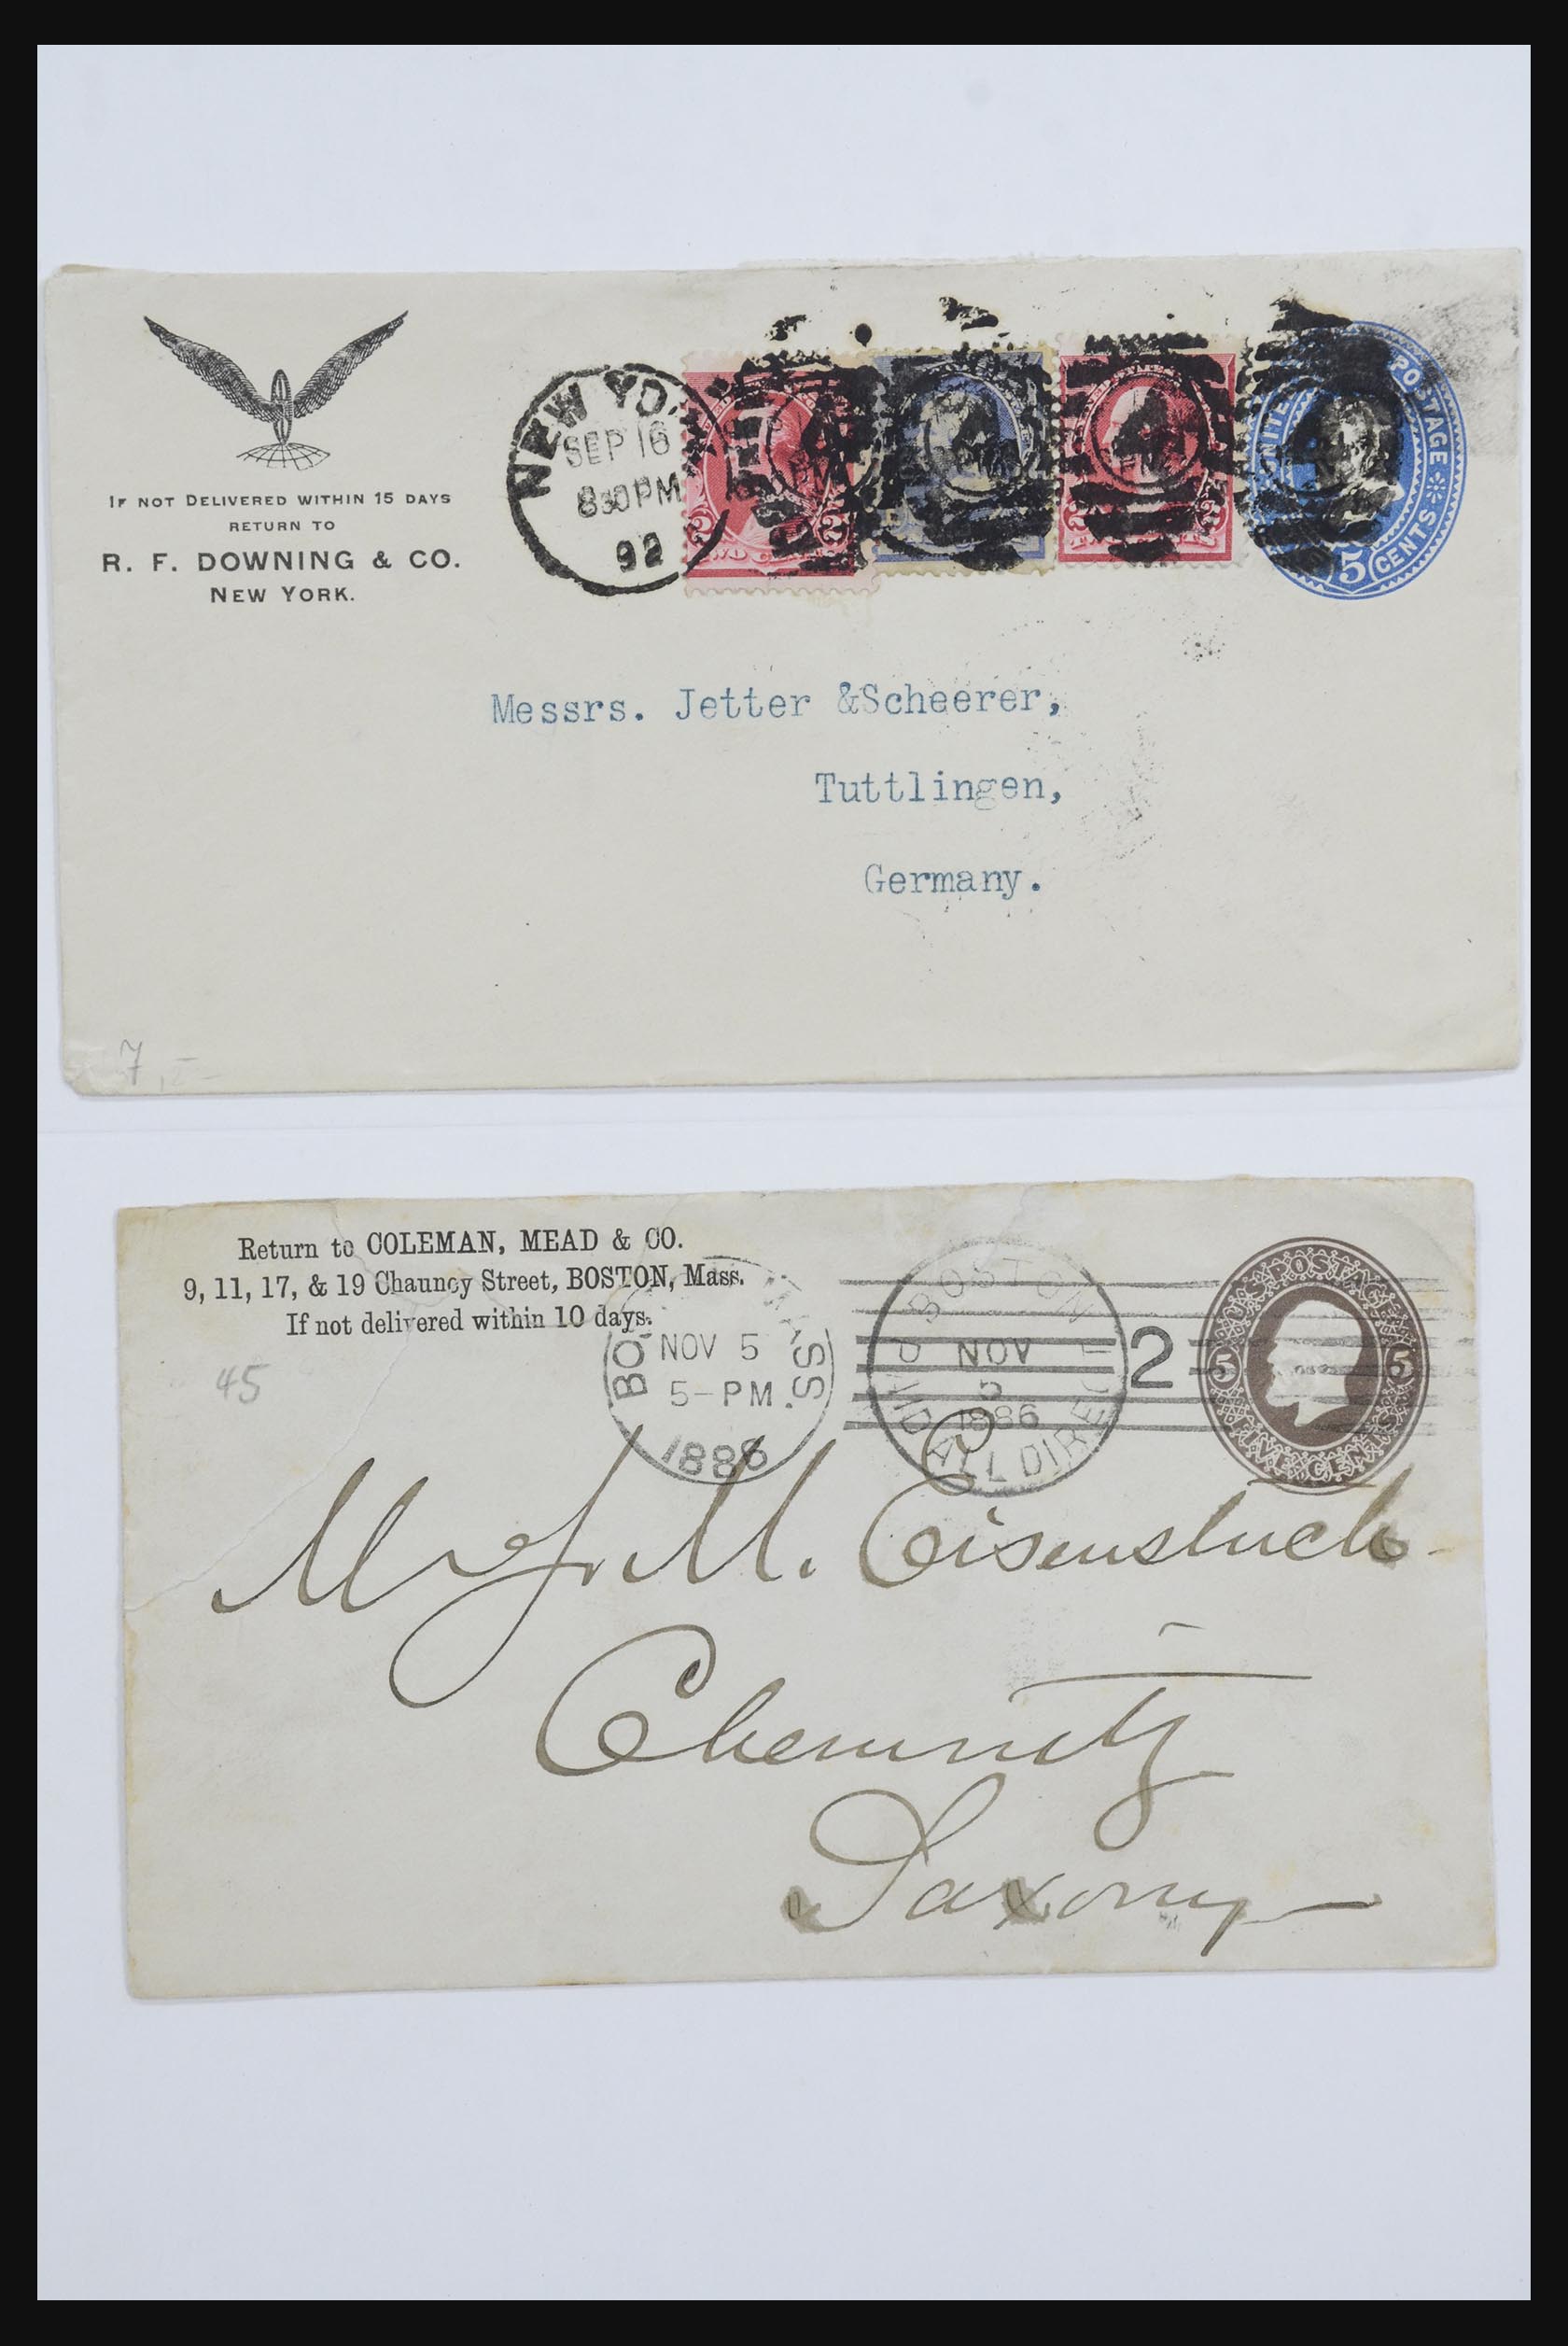 IF NOT DELIVERED WITHIN 15 DAYS
RETURN TO
R. F. DOWNING & CO.
NEW YORK.
NEW YO
SEP 16
830PM
92
2 2
TWO CENTS
2 2
POSTAGE
5 CENTS
Messrs. Jetter &Scheerer,
Tuttlingen,
Germany.
7,-
Return to COLEMAN, MEAD & CO.
9, 11, 17, & 19 Chauncy Street, BOSTON, Mass.
If not delivered within 10 days.
45
BO MASS.
NOV 5
5-PM
1886
BOSTON
NOV
5
1886
ALL DIRECT
2
U.S. POSTAGE
5 5
FIVE CENTS
Mr J. M. Eisenstuck
Chemnitz
Saxony